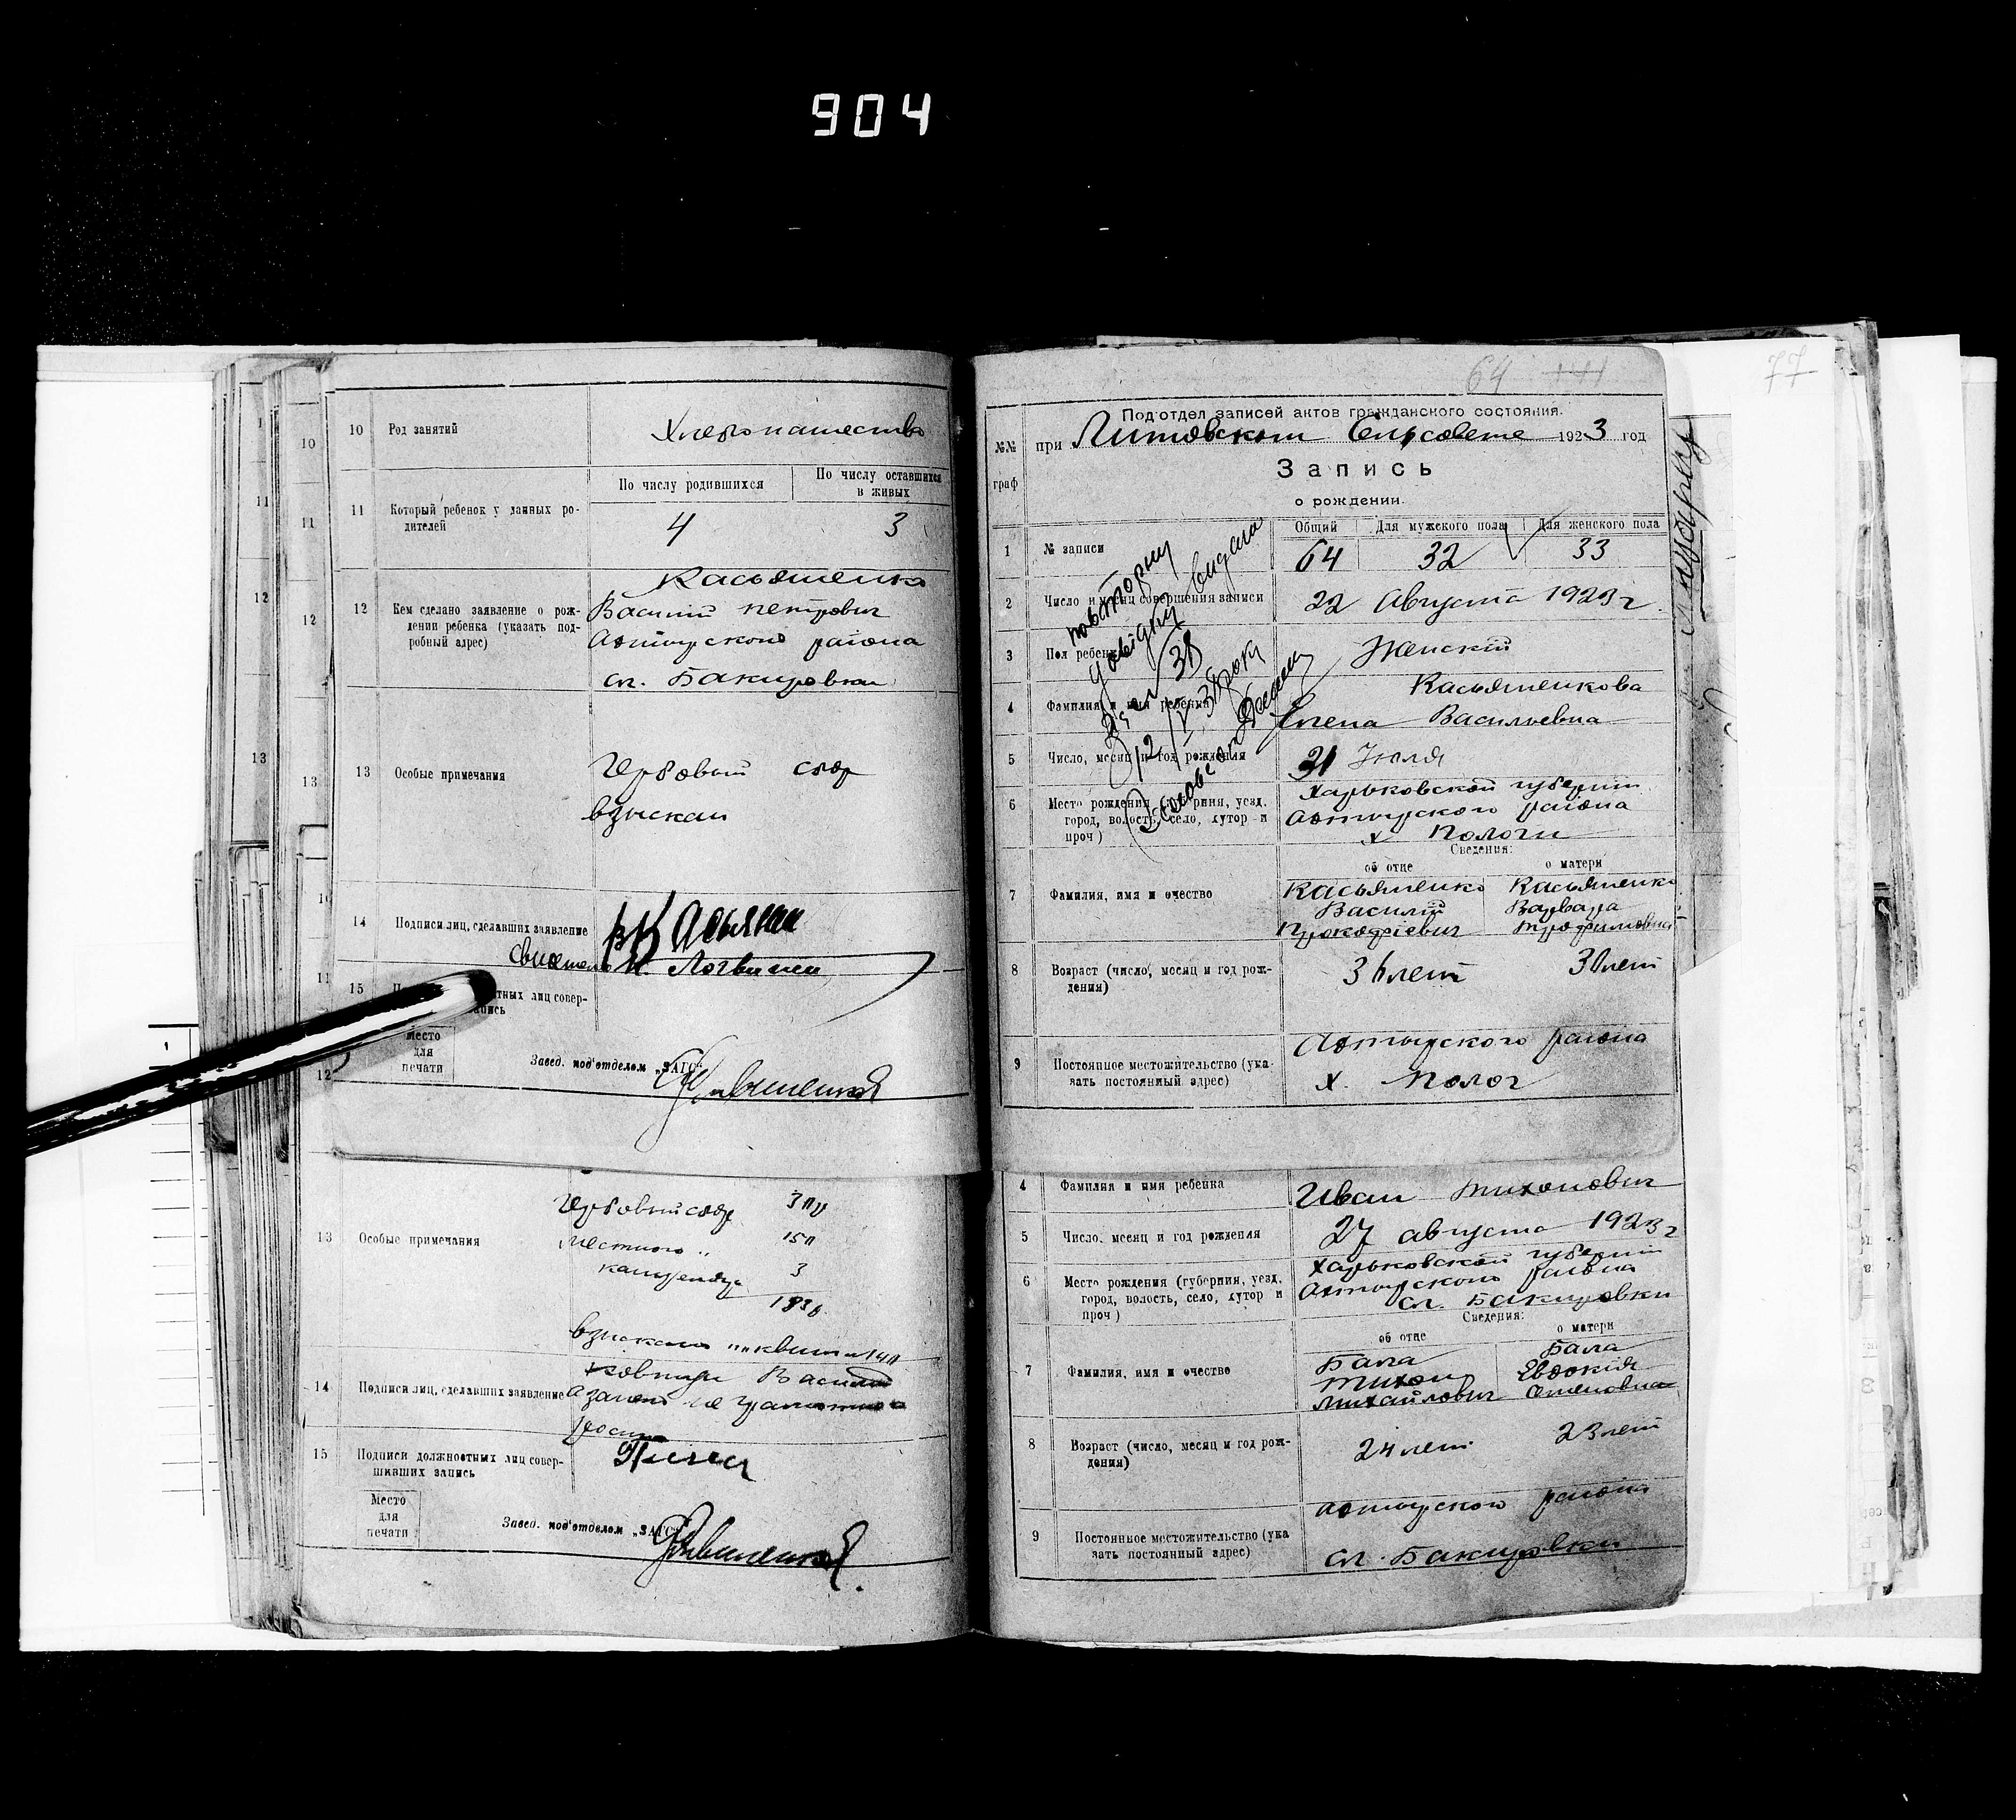 904
10 Род занятий Хлебопашество
11 Который ребенок у данных ро-
дителей
По числу родившихся
По числу оставшихся
в живых
4 3
12 Кем сделано заявление о рож-
дении ребенка (указать под-
робный адрес)
Касьяненко
Василий Петрович
Ахтырского района
сл. Бакировки
13 Особые примечания
Гербовый сбор
взыскан
14 Подписи лиц, сделавших заявление
15
тных лиц совер-
апись
Место
для
печати
Завед. под'отделом „ЗАГС“
13 Особые примечания
Гербовый сбор 3
местного " 15
канцеляр 3
14 Подписи лиц, сделавших заявление
15 Подписи должностных лиц совер-
шивших запись
Место
для
печати
Завед. под'отделом „ЗАГС“
64
77
№№
граф
Под'отдел записей актов гражданского состояния.
при Литовском Сельсовете 1923 год
Запись
о рождении.
1 № записи
Общий Для мужского пола Для женского пола
64 32 33
2 Число и месяц совершения записи 22 Августа 1923 г.
3 Пол ребенка Женский
4 Фамилия и имя ребенка Касьяненкова
Елена Васильевна
5 Число, месяц и год рождения 31 Июля
6 Место рождения (губерния, уезд,
город, волость, село, хутор и
проч)
Харьковской губернии
Ахтырского района
х Пологи
Сведения:
об отце о матери
7 Фамилия, имя и очество
Касьяненко Касьяненко
Василий Варвара
Прокофіевич Трофимовна
8 Возраст (число, месяц и год рож-
дения)
36 лет 30 лет
9 Постоянное местожительство (ука-
зать постоянный адрес)
Ахтырского района
х. Полог
повторну
довідку видана
4 Фамилия и имя ребенка Иван Тихонович
5 Число, месяц и год рождения 27 августа 1923 г
6 Место рождения (губерния, уезд,
город, волость, село, хутор и
проч)
Харьковской губернии
Ахтырского района
сл. Бакировки
Сведения:
об отце о матери
7 Фамилия, имя и очество
Бала Бала
Тихон Евдокія
Михайлович Семеновна
8 Возраст (число, месяц и год рож-
дения)
24 лет 23 лет
9 Постоянное местожительство (ука
зать постоянный адрес)
Ахтырского района
сл. Бакировки